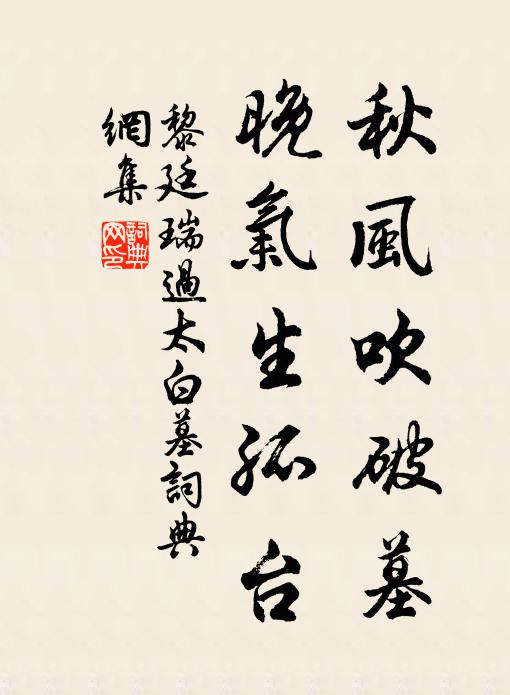 秋風吹破墓
晚氣生孤台
黎廷瑞過太白墓詞典
網集
詞典
网印